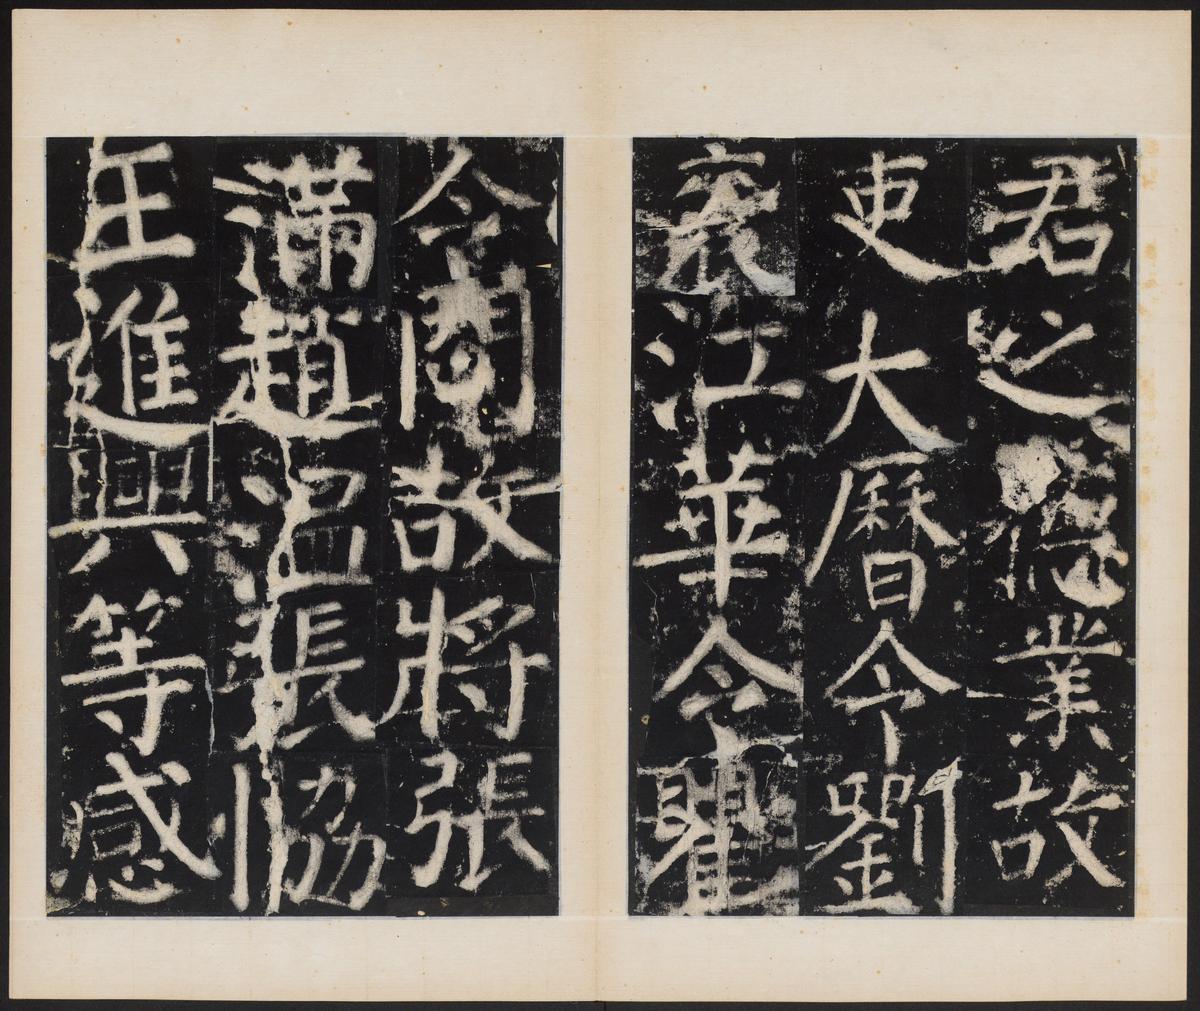 君之德業故
吏大曆令劉
袞江華令瞿
令問故將張
滿趙溫張協
王進興等感